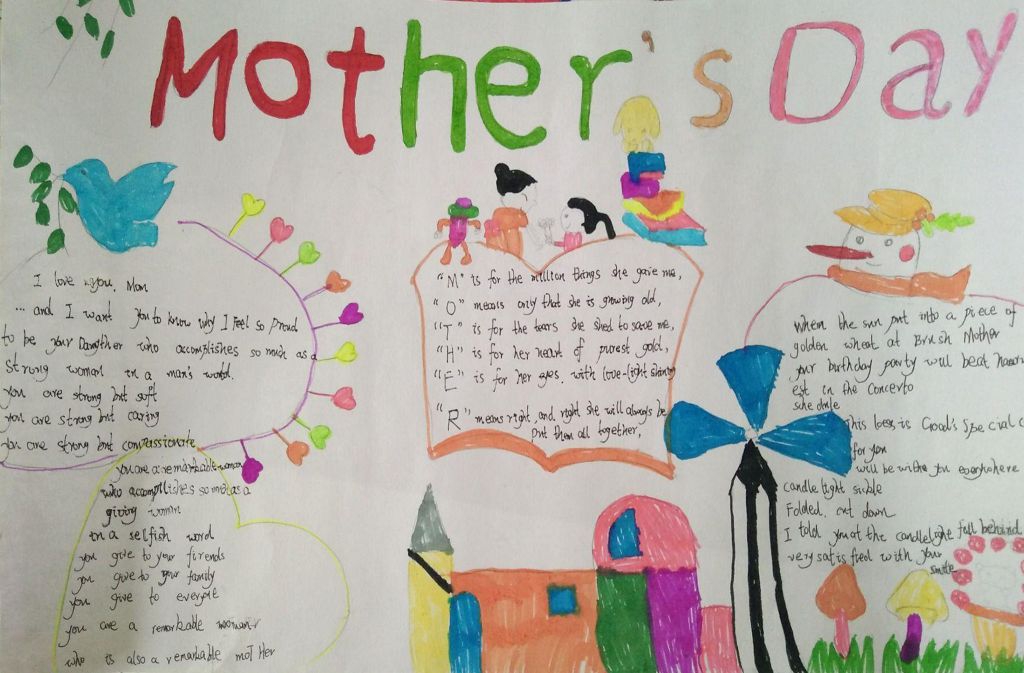 Mother's Day
I love you, Mom
... and I want you to know why I feel so proud
to be your Dangther who accomplishes so much as a
Strong woman in a man's world.
you are strong but soft
you are strong but caring
you are strong but compassionate
you are a remarkable woman
who accomplishes so much as a
giving woman
in a selfish word
you give to your firends
you give to your family
you give to everyone
you are a remarkable woman
who is also a remarkable moTHer
"M" is for the million things she gave me,
"O" means only that she is growing old,
"T" is for the tears she shed to save me,
"H" is for her heart of purest gold,
"E" is for her eyes. with love-light shining
"R" means right, and right she will always be
Put them all together,
When the sun put into a piece of
golden wheat at British Mother
your birthday party will beat
est in the Concerto
This is Good's Special
for you
will be withe you everywhere
candle light
Folded, cut down
I told you at the candlelight fall behind
very satisfied with your
smile